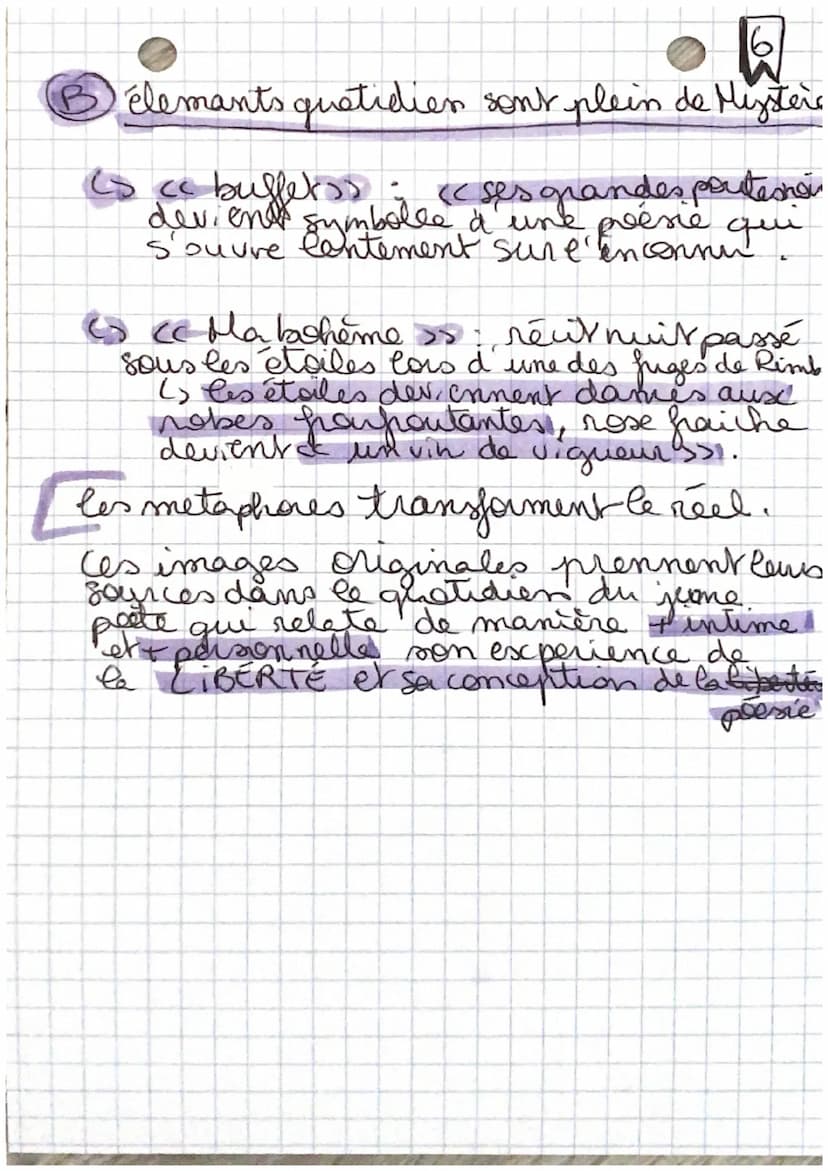 6
B élemants quotidien sont plein de Mystère
↳ << buffet >> : << ses grandes portes noir
deviend symbolee d'une poésie qui
s'ouvre lentement sur l'inconnu .
↳ << Ma bohème >> : récit nuit passé
sous les étoiles lors d'une des fuges de Rimb
↳ les étoiles deviennent dames aux
robes froufroutantes, rose fraiche
devient << un vin de vigueur >>.
les metaphores transforment le réel.
ces images originales prennent leurs
sources dans le quotidien du jeune
poète qui relate de manière + intime
et + personnelle son experience de
la LIBERTÉ et sa conception de la liberté
poesie